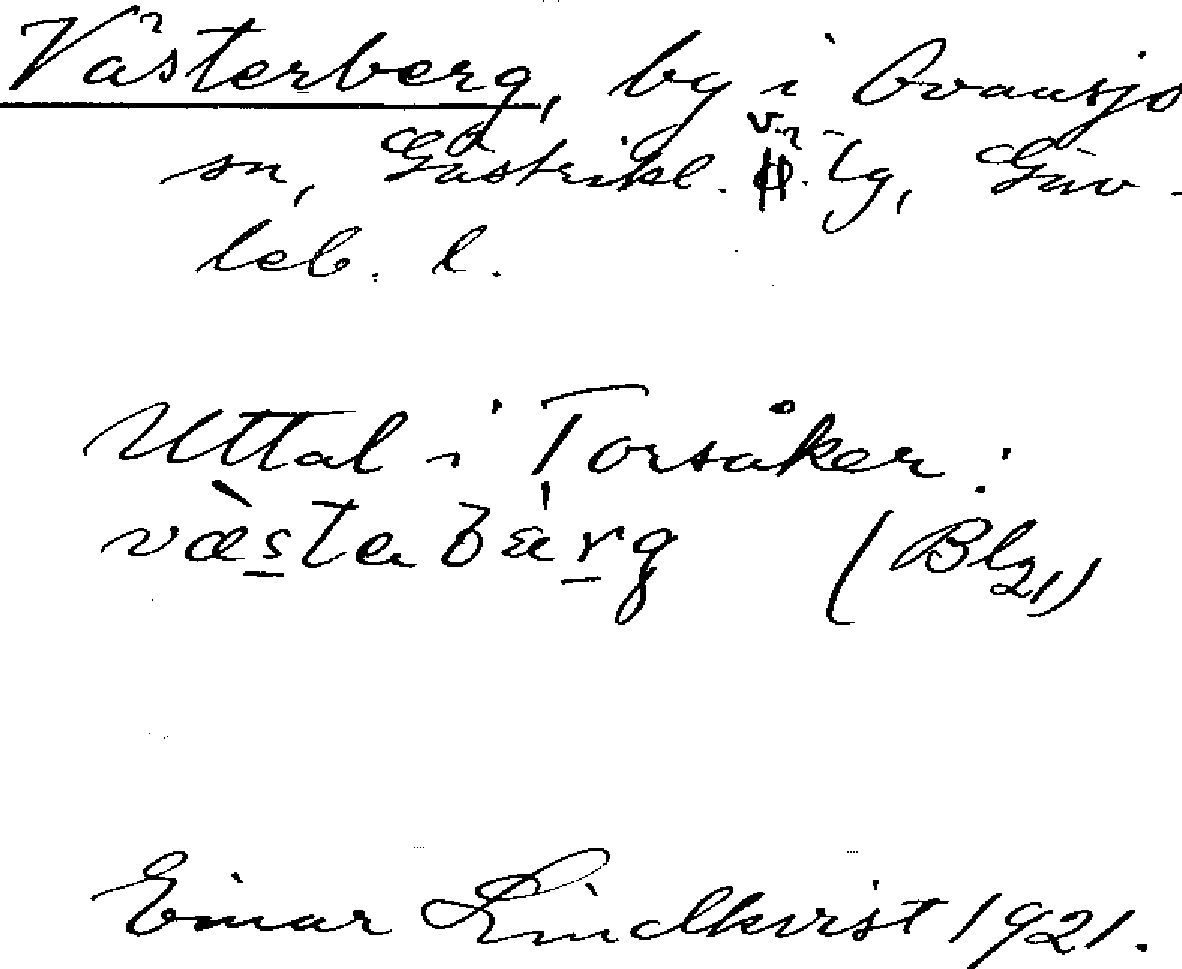 Västerberg, by i Ovansjö
sn, Gästrikl. V. tg, Gäv-
leb. l.
Uttal i Torsåker:
væ̀sta bæ̀rg (Bl 21)
Einar Lindkvist 1921.